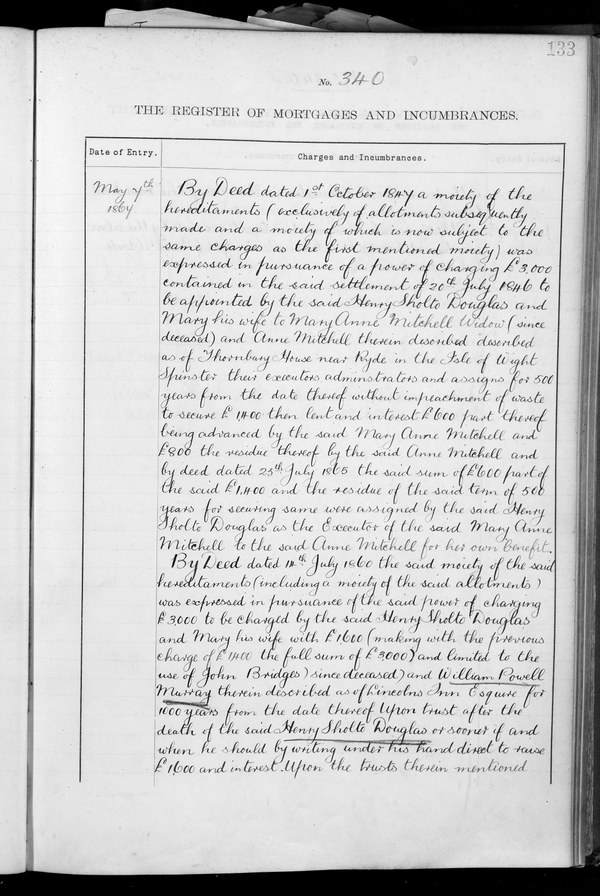 133
No. 340
THE REGISTER OF MORTGAGES AND INCUMBRANCES.
Date of Entry.
Charges and Incumbrances.
May 7th
1867
By Deed dated 1st October 1847 a moiety of the
hereditaments (exclusively of allotments subsequently
made and a moiety of which is now subject to the
same charges as the first mentioned moiety) was
expressed in pursuance of a power of charging £3,000
contained in the said settlement of 20th July 1846 to
be appointed by the said Henry Sholto Douglas and
Mary his wife to Mary Anne Mitchell Widow (since
deceased) and Anne Mitchell therein described described
as of Thornbury House near Ryde in the Isle of Wight
Spinster their executors adminstrators and assigns for 500
years from the date thereof without impeachment of waste
to secure £1400 then lent and interest £600 part thereof
being advanced by the said Mary Anne Mitchell and
£800 the residue thereof by the said Anne Mitchell and
by deed dated 25th July 1865 the said sum of £600 part of
the said £1,400 and the residue of the said term of 500
years for securing same were assigned by the said Henry
Sholto Douglas as the Executor of the said Mary Anne
Mitchell to the said Anne Mitchell for her own benefit.
By Deed dated 14th July 1860 the said moiety of the said
hereditaments (including a moiety of the said allotments)
was expressed in pursuance of the said power of charging
£3000 to be charged by the said Henry Sholto Douglas
and Mary his wife with £1600 (making with the previous
charge of £1400 the full sum of £3000) and limited to the
use of John Bridges) since deceased) and William Powell
Murray therein described as of Lincolns Inn Esquire for
1000 years from the date thereof Upon trust after the
death of the said Henry Sholto Douglas or sooner if and
when he should by writing under his hand direct to raise
£1600 and interest Upon the trusts therein mentioned